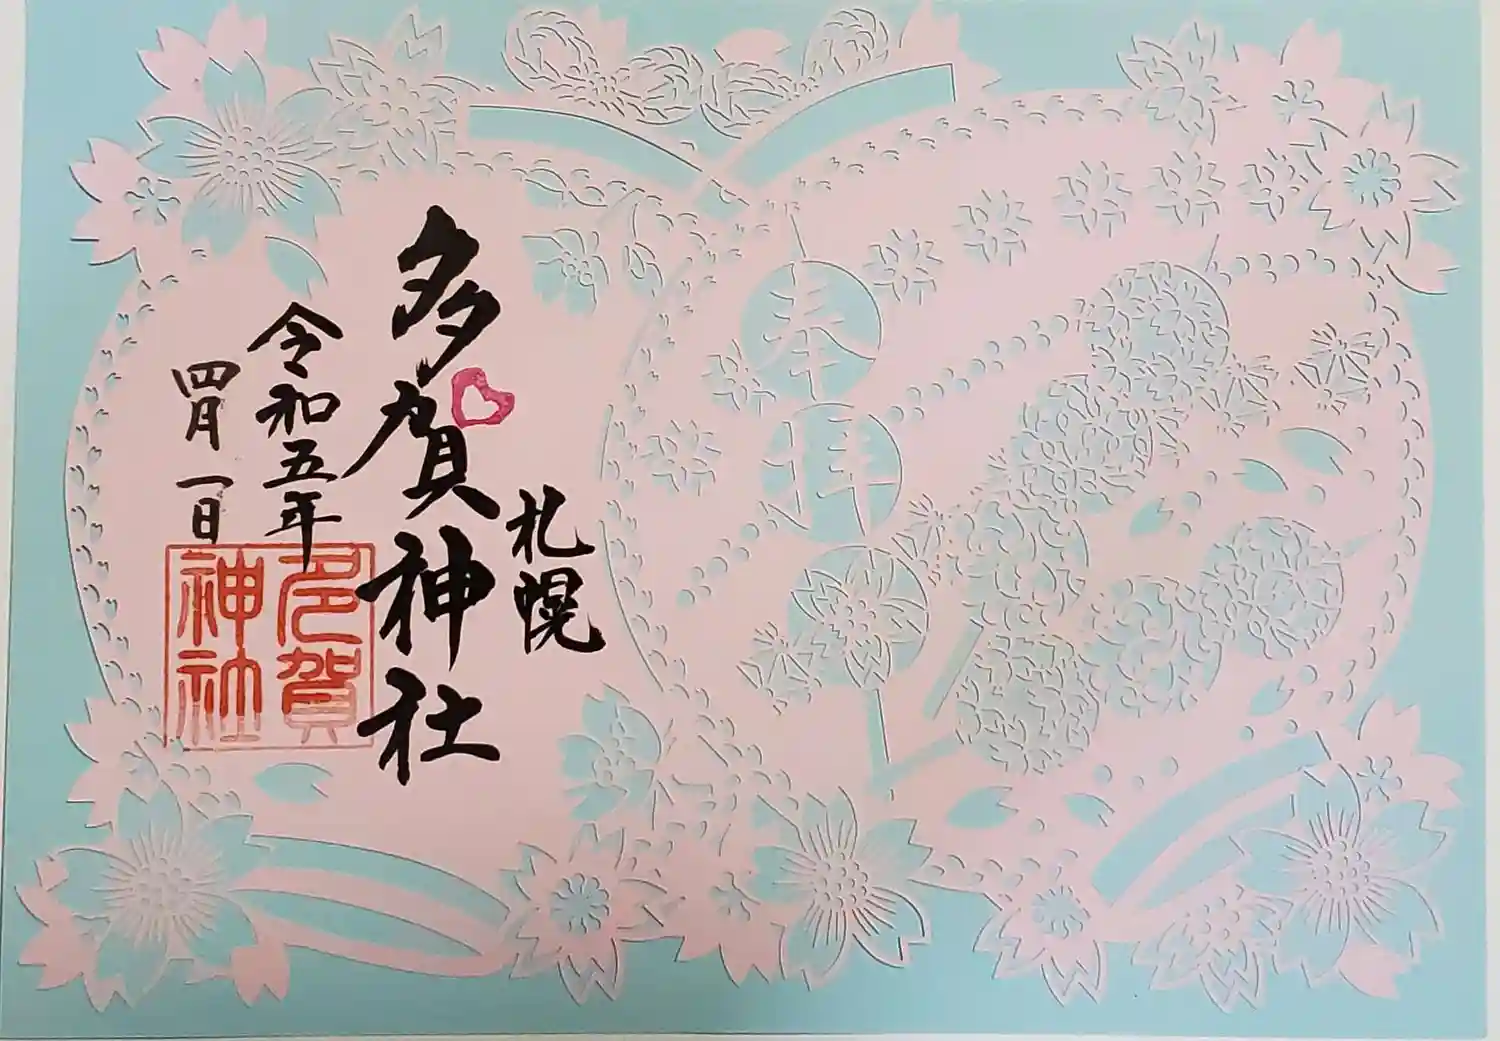 奉拝
札幌
多賀神社
令和五年
四月一日
多賀
神社